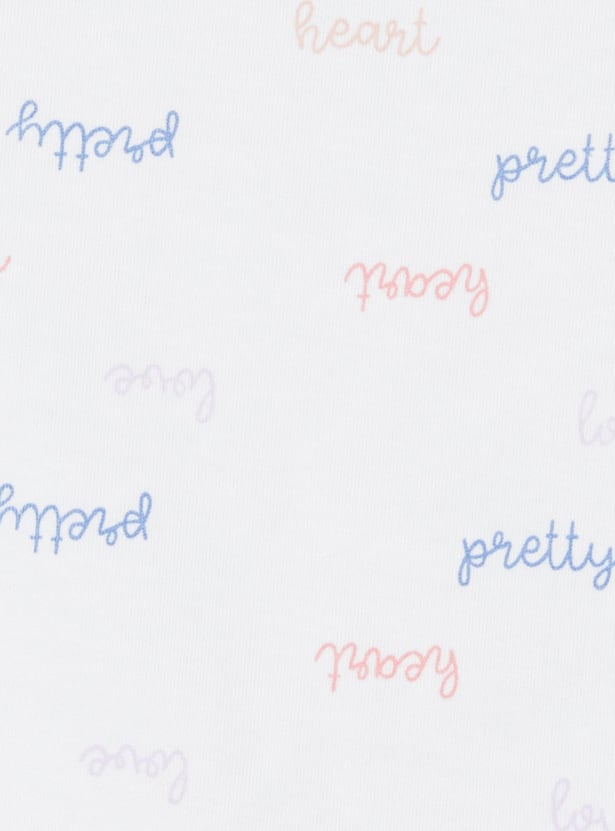 heart
pretty
prett
heart
love
lo
pretty
pretty
heart
love
lov